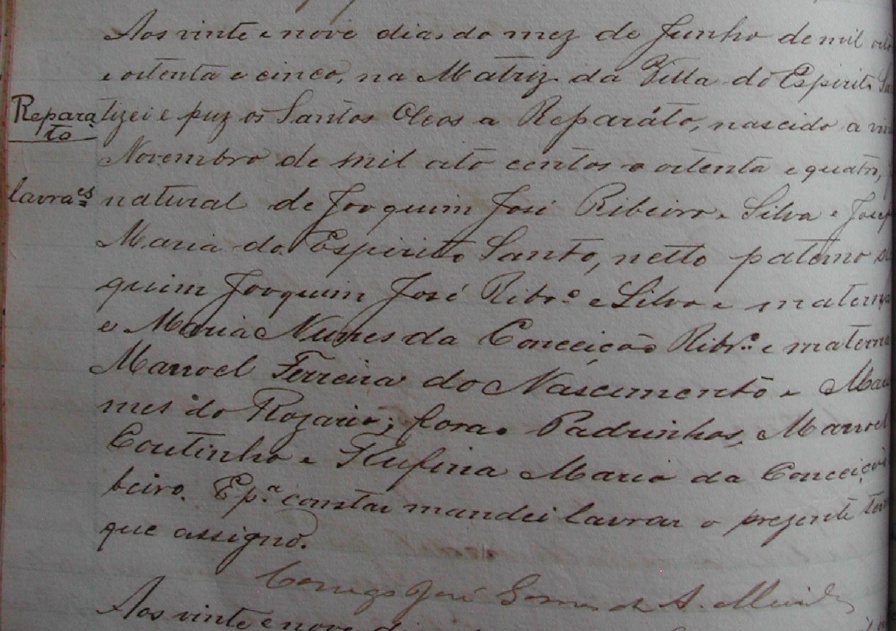 Aos vinte e nove dias do mez de Junho de mil oito
e oitenta e cinco, na Matriz da Villa do Espirito San
Repara
to
tizei e puz os Santos Oleos a Reparáto, nascido a
Novembro de mil oito centos e oitenta e quatro,
natural de Joaquim José Ribeiro e Silva e Josep
Maria do Espirito Santo, netto paterno
quim Joaquim José Ribrº e Silva e materna
e Maria Nunes da Conceição Ribrº e materna
Manoel Ferreira do Nascimento e Mar
mes do Rozario; forao Padrinhos, Manoel
Coutinho e Rufina Maria da Conceiçao
beiro. E pª constar mandei lavrar o prezente ter
que assigno.
Conego José Gomes de A.
Aos vinte e nove